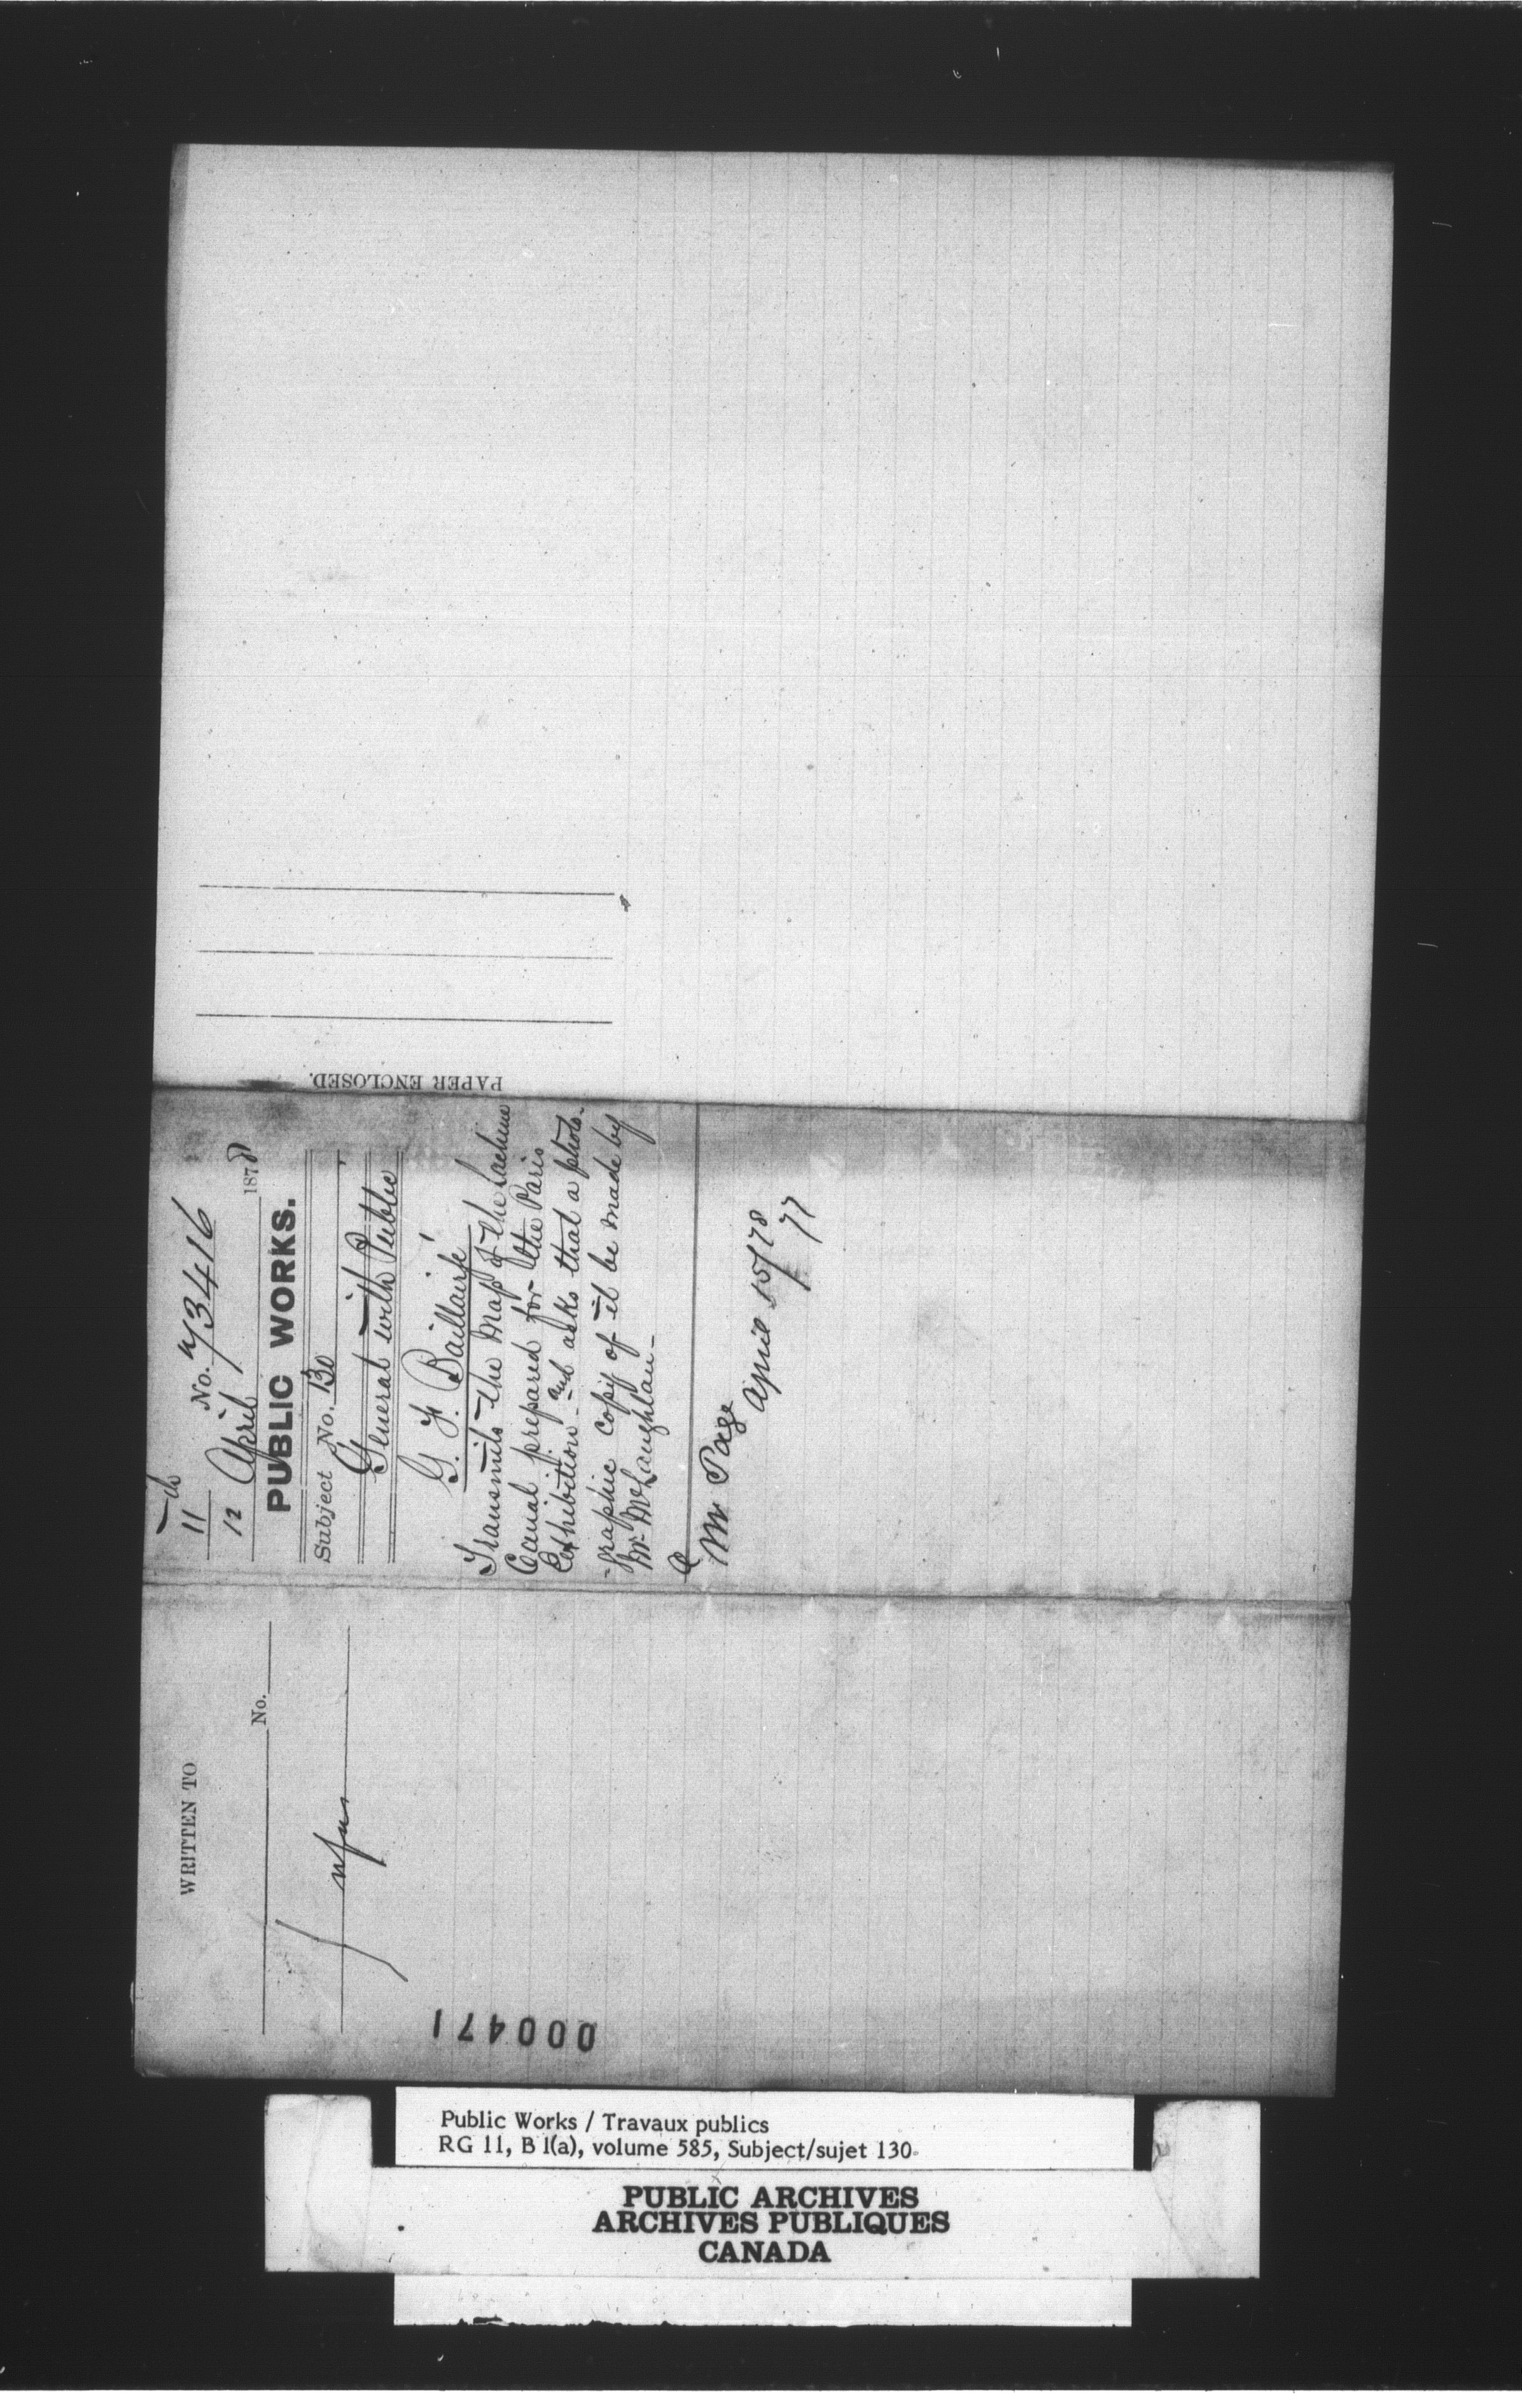 PAPER ENCLOSED.
11th
No. 73416
12 April 1878
PUBLIC WORKS.
Subject No. 130
General with Public
G. F. Baillairgé
Transmits the Map of the Lachine
Canal prepared for the Paris
Exhibition - and asks that a photo-
-graphic copy of it be made by
Mr McLaughlan -
Mr Page
April 15/78
77
WRITTEN TO
No.
000471
Public Works / Travaux publics
RG 11, B 1(a), volume 585, Subject/sujet 130
PUBLIC ARCHIVES
ARCHIVES PUBLIQUES
CANADA